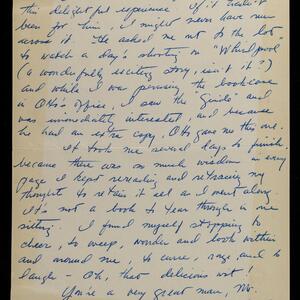 this delightful experience. If it hadn't
been for him, I might never have run
across it. He asked me out to the lot
to watch a day's shooting on "Whirlpool"
(a wonderfully exciting story, isn't it?)
and while I was perusing the bookcase
in Otto's office, I saw the "Guide" and
was immediately interested, and because
he had an extra copy, Otto gave me this one.
It took me several days to finish
because there was so much wisdom in every
page I kept rereading and retracing my
thoughts to retain it all as I went along.
It's not a book to tear through in one
sitting. I found myself stopping to
cheer, to weep, wonder and look within
and around me, to curse, rage, and to
laugh - Oh, that delicious wit!
You're a very great man, Mr.